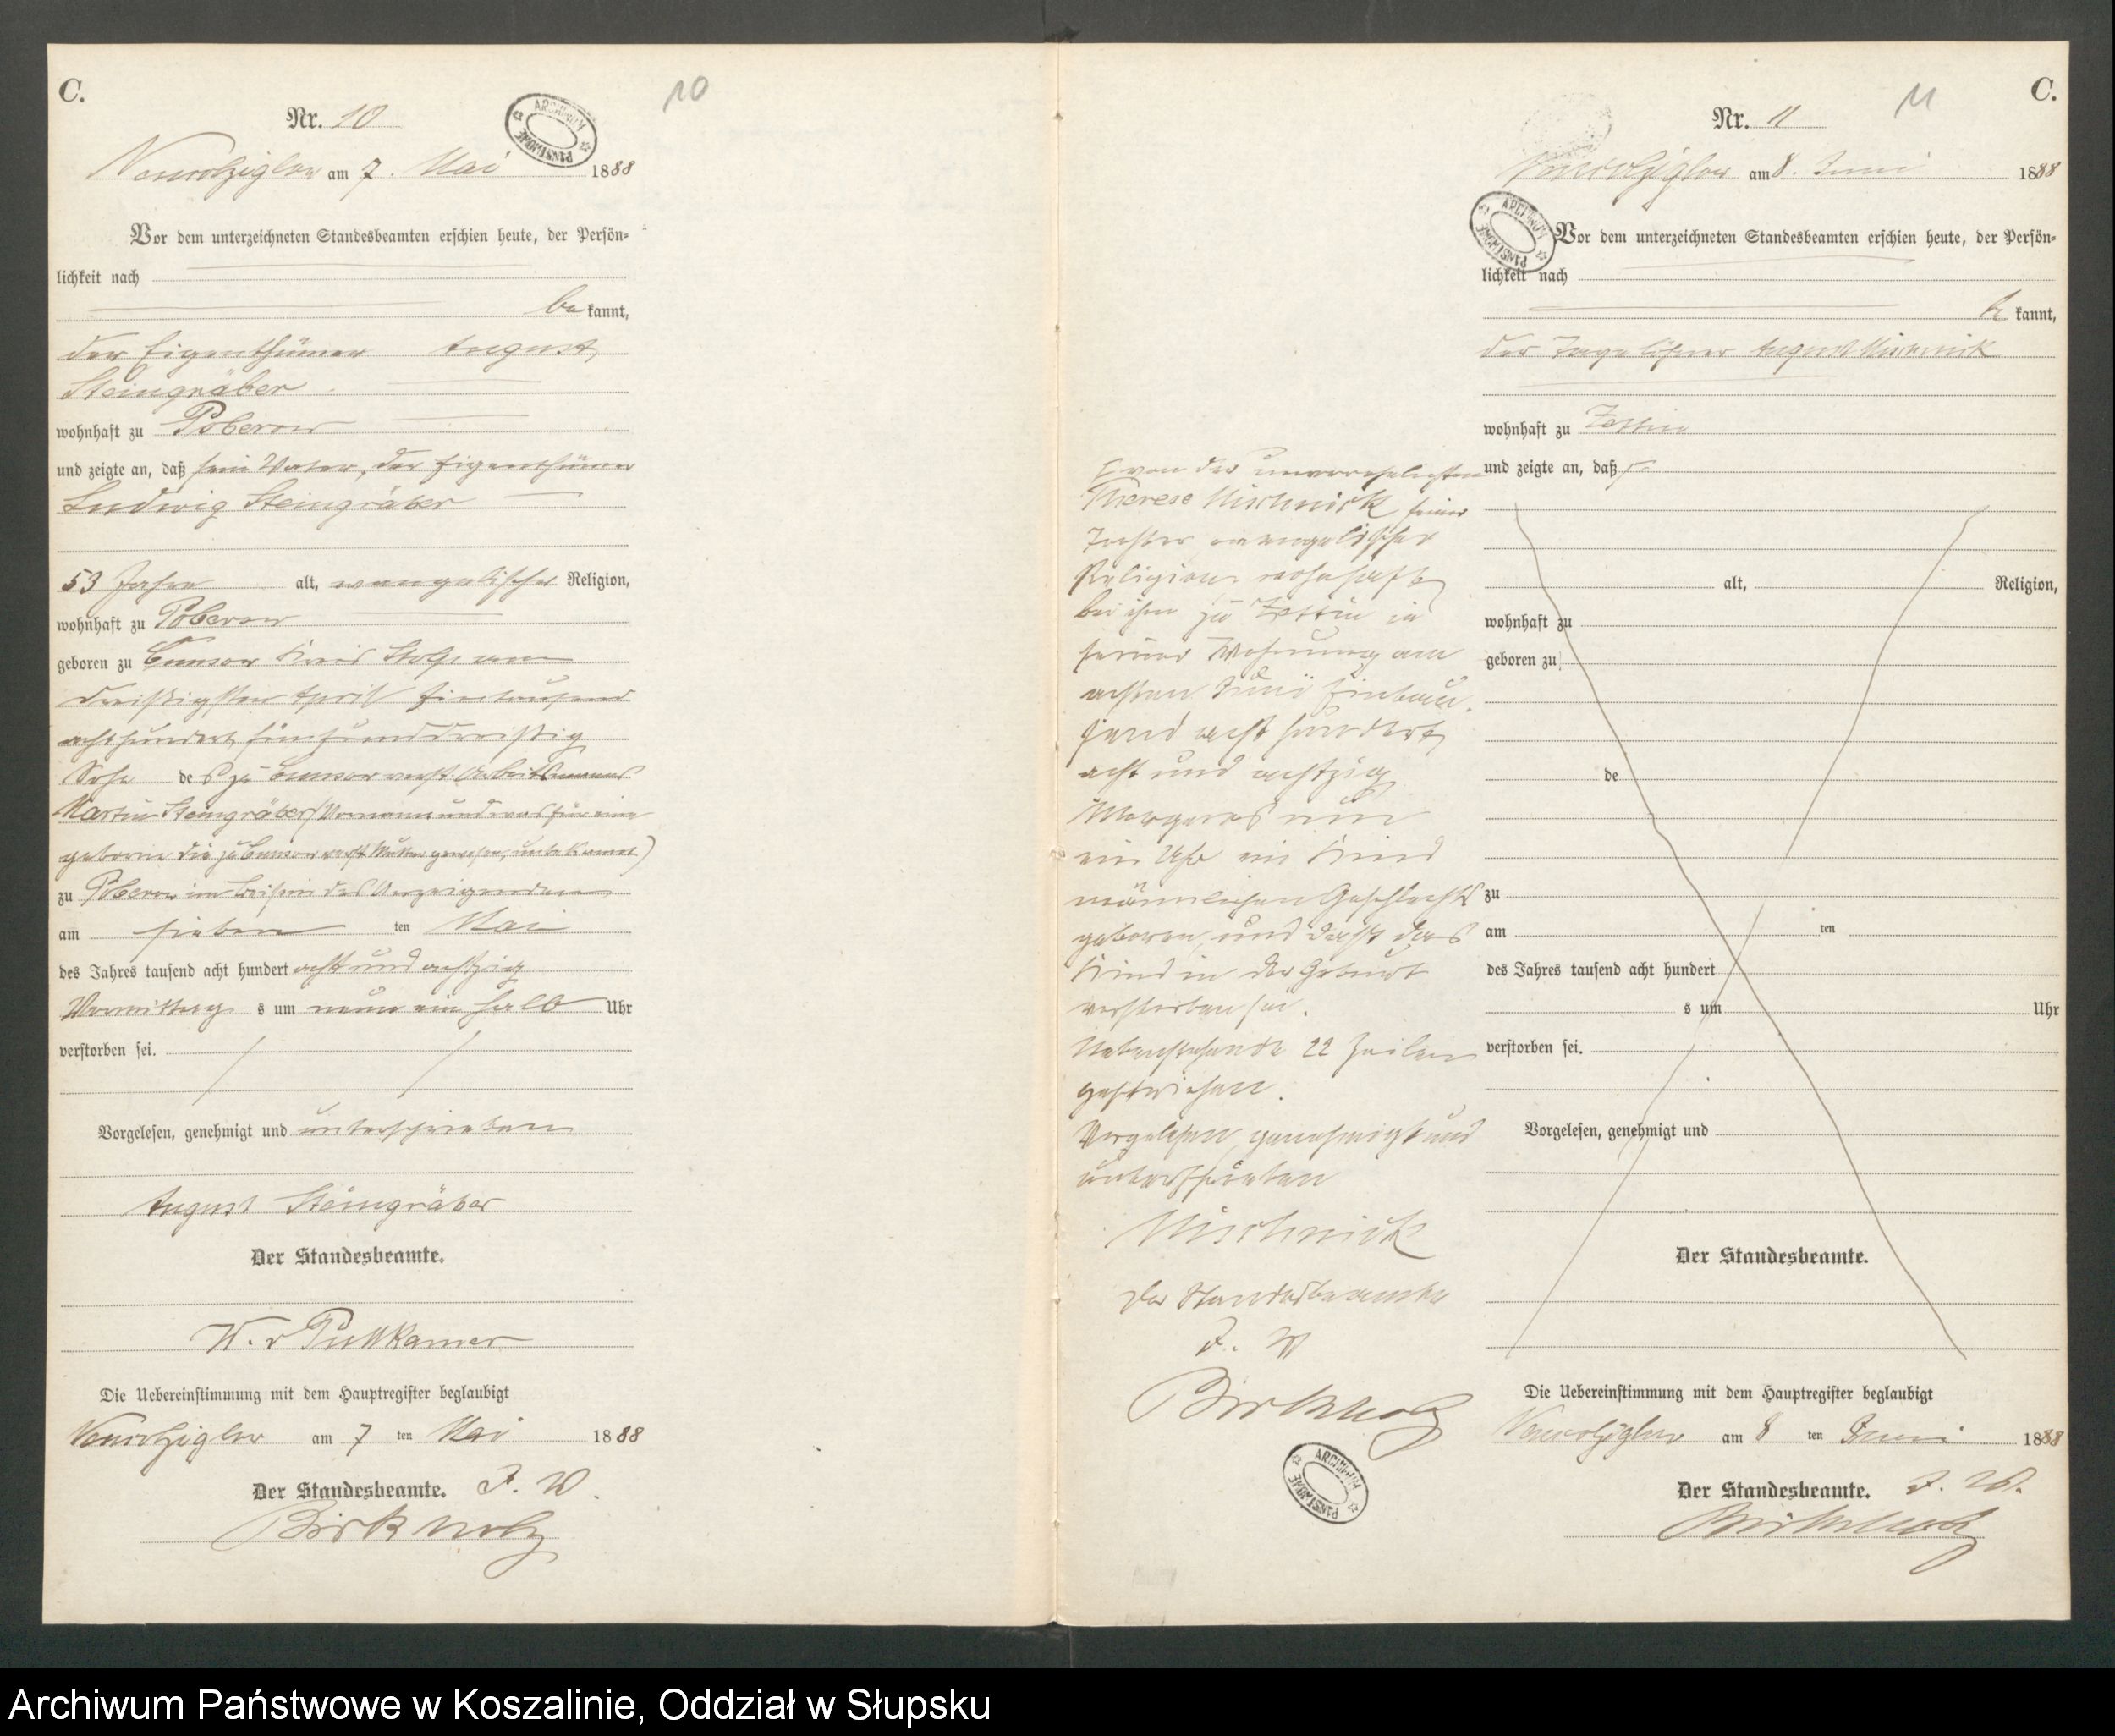 C.
Nr. 10
10
ARCHIWUM PAŃSTWOWE
Neukolziglow am 7. Mai 1888
Vor dem unterzeichneten Standesbeamten erschien heute, der Persön-
lichkeit nach
be kannt,
der Eigenthümer August
Steingräber
wohnhaft zu Poberow
und zeigte an, daß sein Vater, der Eigenthümer
Ludwig Steingräber
53 Jahre alt, evangelischer Religion,
wohnhaft zu Poberow
geboren zu Kreis Stolp am
dreißigsten April Eintausend
achthundert fünfunddreißig
Sohn des zu verst. Arbeitsmanns
Martin Steingräber (Vorname und was für eine
geborene die zu verst. Mutter gewesen, unbekannt)
zu Poberow im Beisein des Anzeigenden
am sieben ten Mai
des Jahres tausend acht hundert acht und achtzig
Vormittag s um neun ein halb Uhr
verstorben sei.
Vorgelesen, genehmigt und unterschrieben
August Steingräber
Der Standesbeamte.
W. v Puttkamer
Die Uebereinstimmung mit dem Hauptregister beglaubigt
Neukolziglow am 7 ten Mai 1888
Der Standesbeamte. J. V.
Birkholz
C.
Nr. 11
11
Neukolziglow am 8. Juni 1888
ARCHIWUM PAŃSTWOWE
Vor dem unterzeichneten Standesbeamten erschien heute, der Persön-
lichkeit nach
be kannt,
der Tagelöhner August Mischnick
wohnhaft zu Zettin
und zeigte an, daß
von der unverehelichten
Therese Mischnick seiner
Tochter evangelischer
Religion wohnhaft
bei ihm zu Zettin in
seiner Wohnung am
achten Juni Eintau-
send acht hundert
acht und achtzig
Morgens um
ein Uhr ein Kind
männlichen Geschlechts
geboren, und daß das
Kind in der Geburt
verstorben sei.
Nebenstehende 22 Zeilen
gestrichen.
Vorgelesen, genehmigt und
unterschrieben
Mischnick
Der Standesbeamte
J. V
Birkholz
ARCHIWUM PAŃSTWOWE
alt, Religion,
wohnhaft zu
geboren zu
de
zu
am ten
des Jahres tausend acht hundert
s um Uhr
verstorben sei.
Vorgelesen, genehmigt und
Der Standesbeamte.
Die Uebereinstimmung mit dem Hauptregister beglaubigt
Neukolziglow am 8 ten Juni 1888
Der Standesbeamte. J. V.
Birkholz
Archiwum Państwowe w Koszalinie, Oddział w Słupsku